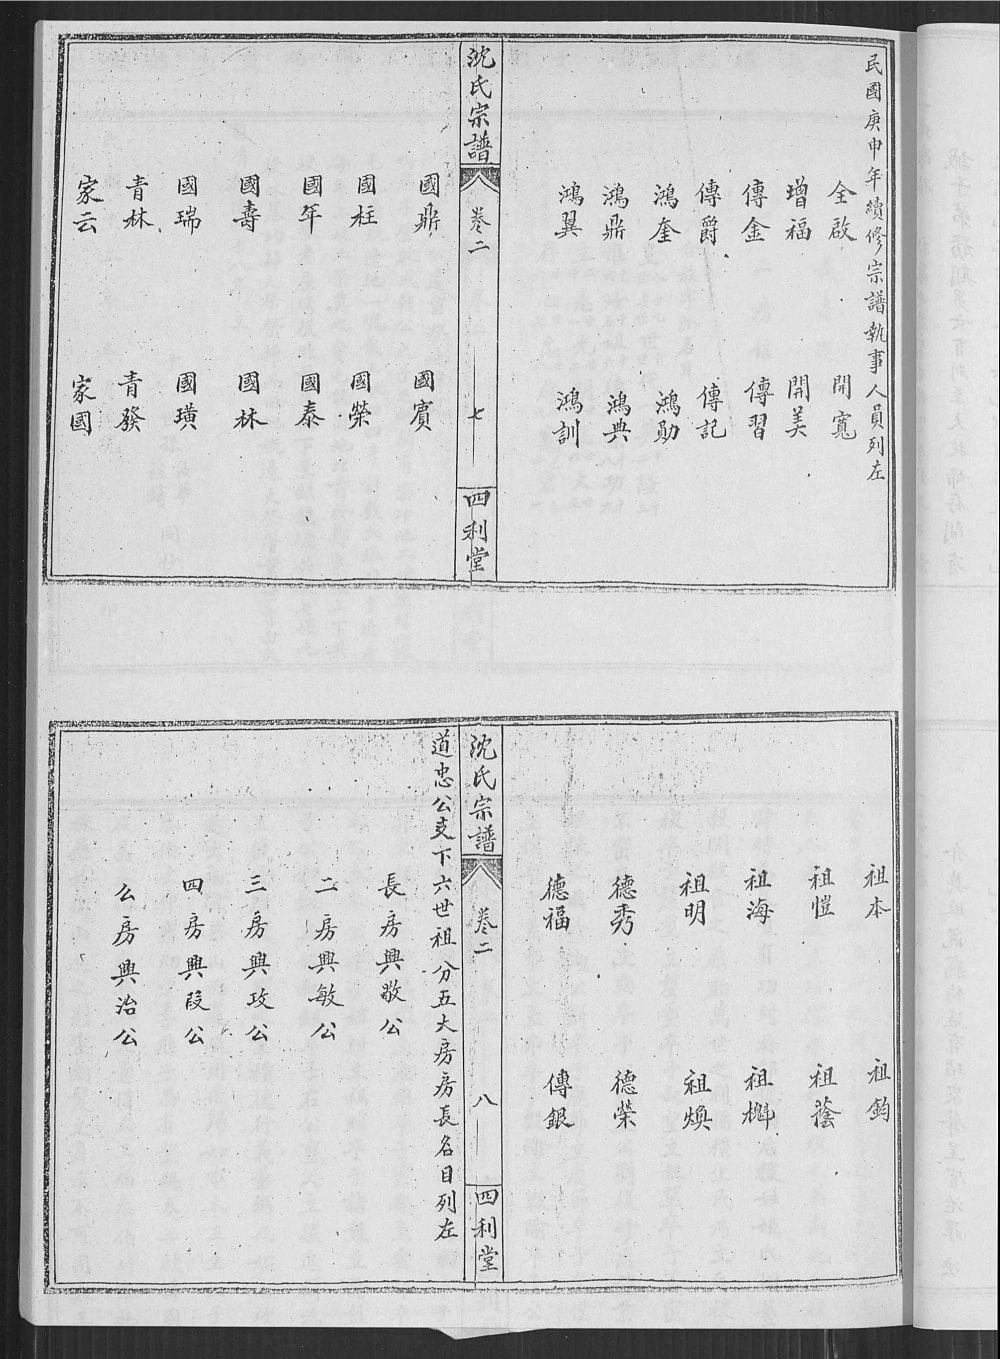 民國庚申年續修宗譜執事人員列左
全啟 開寬
增福 開美
傳金 傳習
傳爵 傳記
鴻奎 鴻勛
鴻鼎 鴻典
鴻翼 鴻訓
沈氏宗譜 卷二 七 四利堂
國鼎 國賓
國柱 國榮
國年 國泰
國壽 國林
國瑞 國璜
青林 青發
家云 家國
祖本 祖鈞
祖愷 祖蔭
祖海 祖
祖明 祖煥
德秀 德榮
德福 傳銀
沈氏宗譜 卷二 八 四利堂
道忠公支下六世祖分五大房房長名目列左
長房興敬公
二房興敏公
三房興攻公
四房興段公
么房興治公